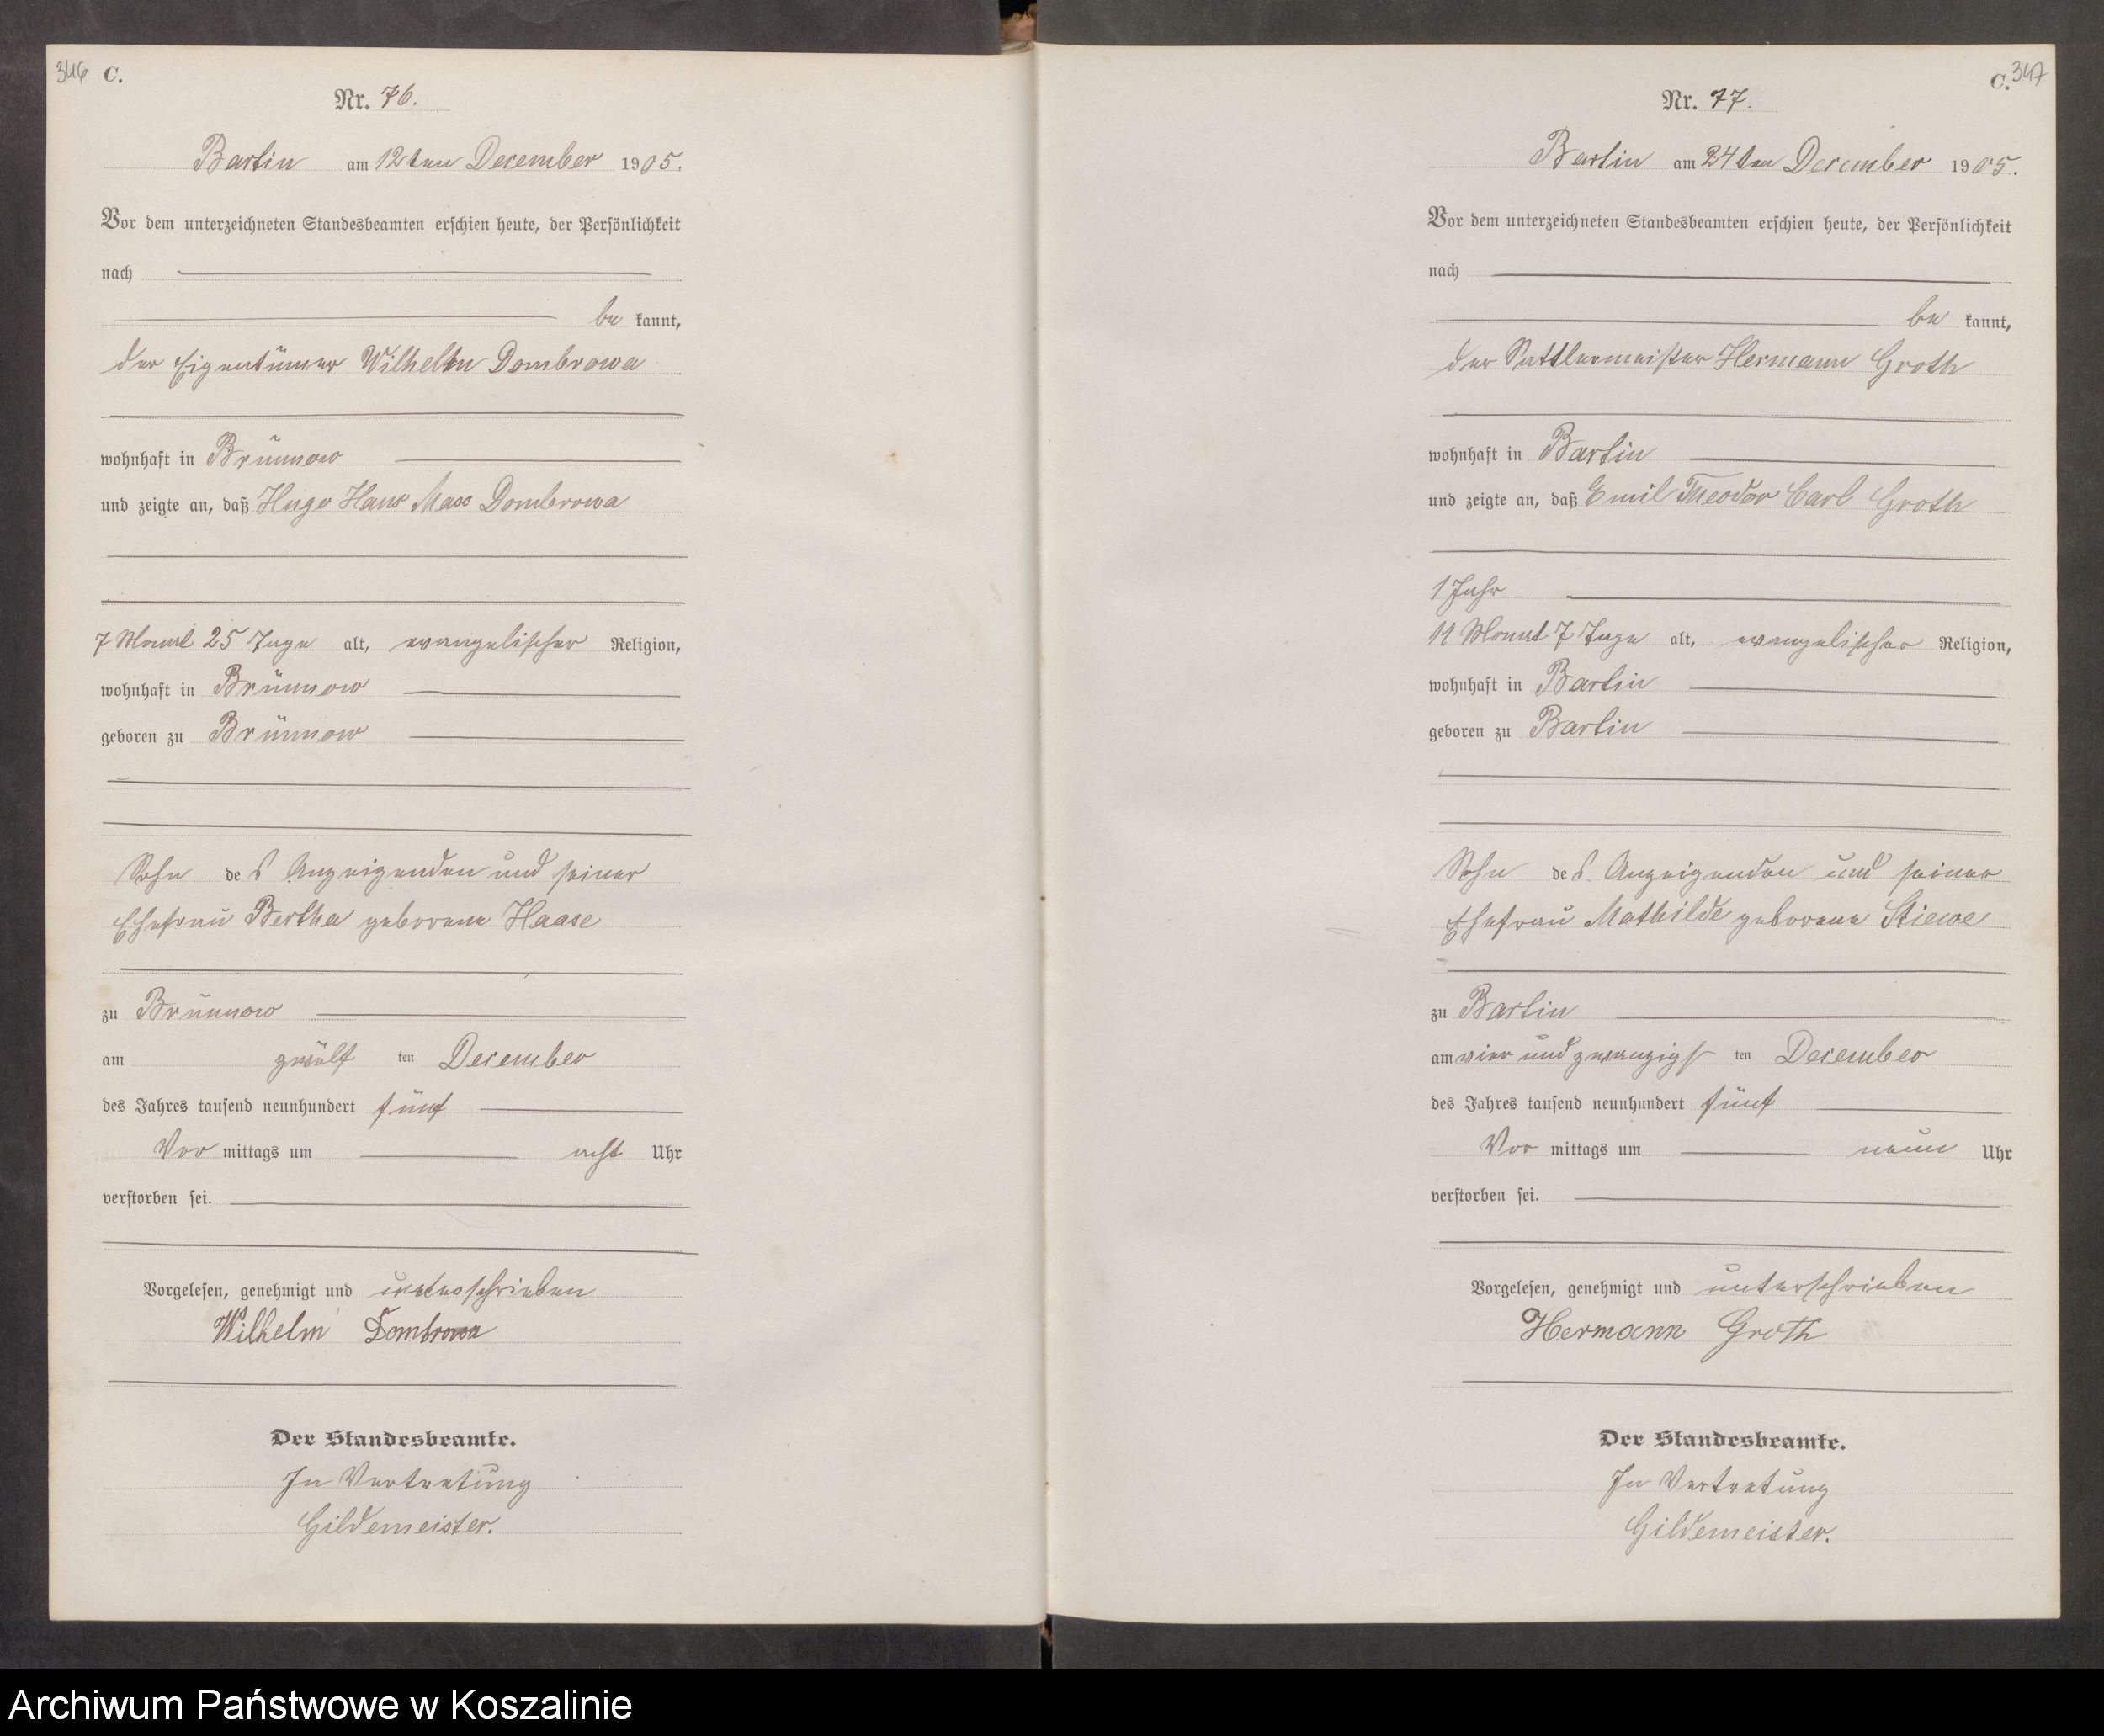 346 C.
Nr. 76.
Bartin am 12ten December 1905.
Vor dem unterzeichneten Standesbeamten erschien heute, der Persönlichkeit
nach
be kannt,
der Eigentümer Wilhelm Dombrowa
wohnhaft in Brünnow
und zeigte an, daß Hugo Hans Max Dombrowa
7 Monat 25 Tage alt, evangelischer Religion,
wohnhaft in Brünnow
geboren zu Brünnow
Sohn des Anzeigenden und seiner
Ehefrau Bertha geborene Haase
zu Brünnow
am zwölf ten December
des Jahres tausend neunhundert fünf
Vor mittags um acht Uhr
verstorben sei.
Vorgelesen, genehmigt und unterschrieben
Wilhelm Dombrowa
Der Standesbeamte.
In Vertretung
Gildemeister.
C. 347
Nr. 77.
Bartin am 24ten December 1905.
Vor dem unterzeichneten Standesbeamten erschien heute, der Persönlichkeit
nach
be kannt,
der Sattlermeister Hermann Groth
wohnhaft in Bartin
und zeigte an, daß Emil Theodor Carl Groth
1 Jahr
11 Monat 7 Tage alt, evangelischer Religion,
wohnhaft in Bartin
geboren zu Bartin
Sohn des Anzeigenden und seiner
Ehefrau Mathilde geborene Stiewe
zu Bartin
am vier und zwanzigs ten December
des Jahres tausend neunhundert fünf
Vor mittags um neun Uhr
verstorben sei.
Vorgelesen, genehmigt und unterschrieben
Hermann Groth
Der Standesbeamte.
In Vertretung
Gildemeister.
Archiwum Państwowe w Koszalinie